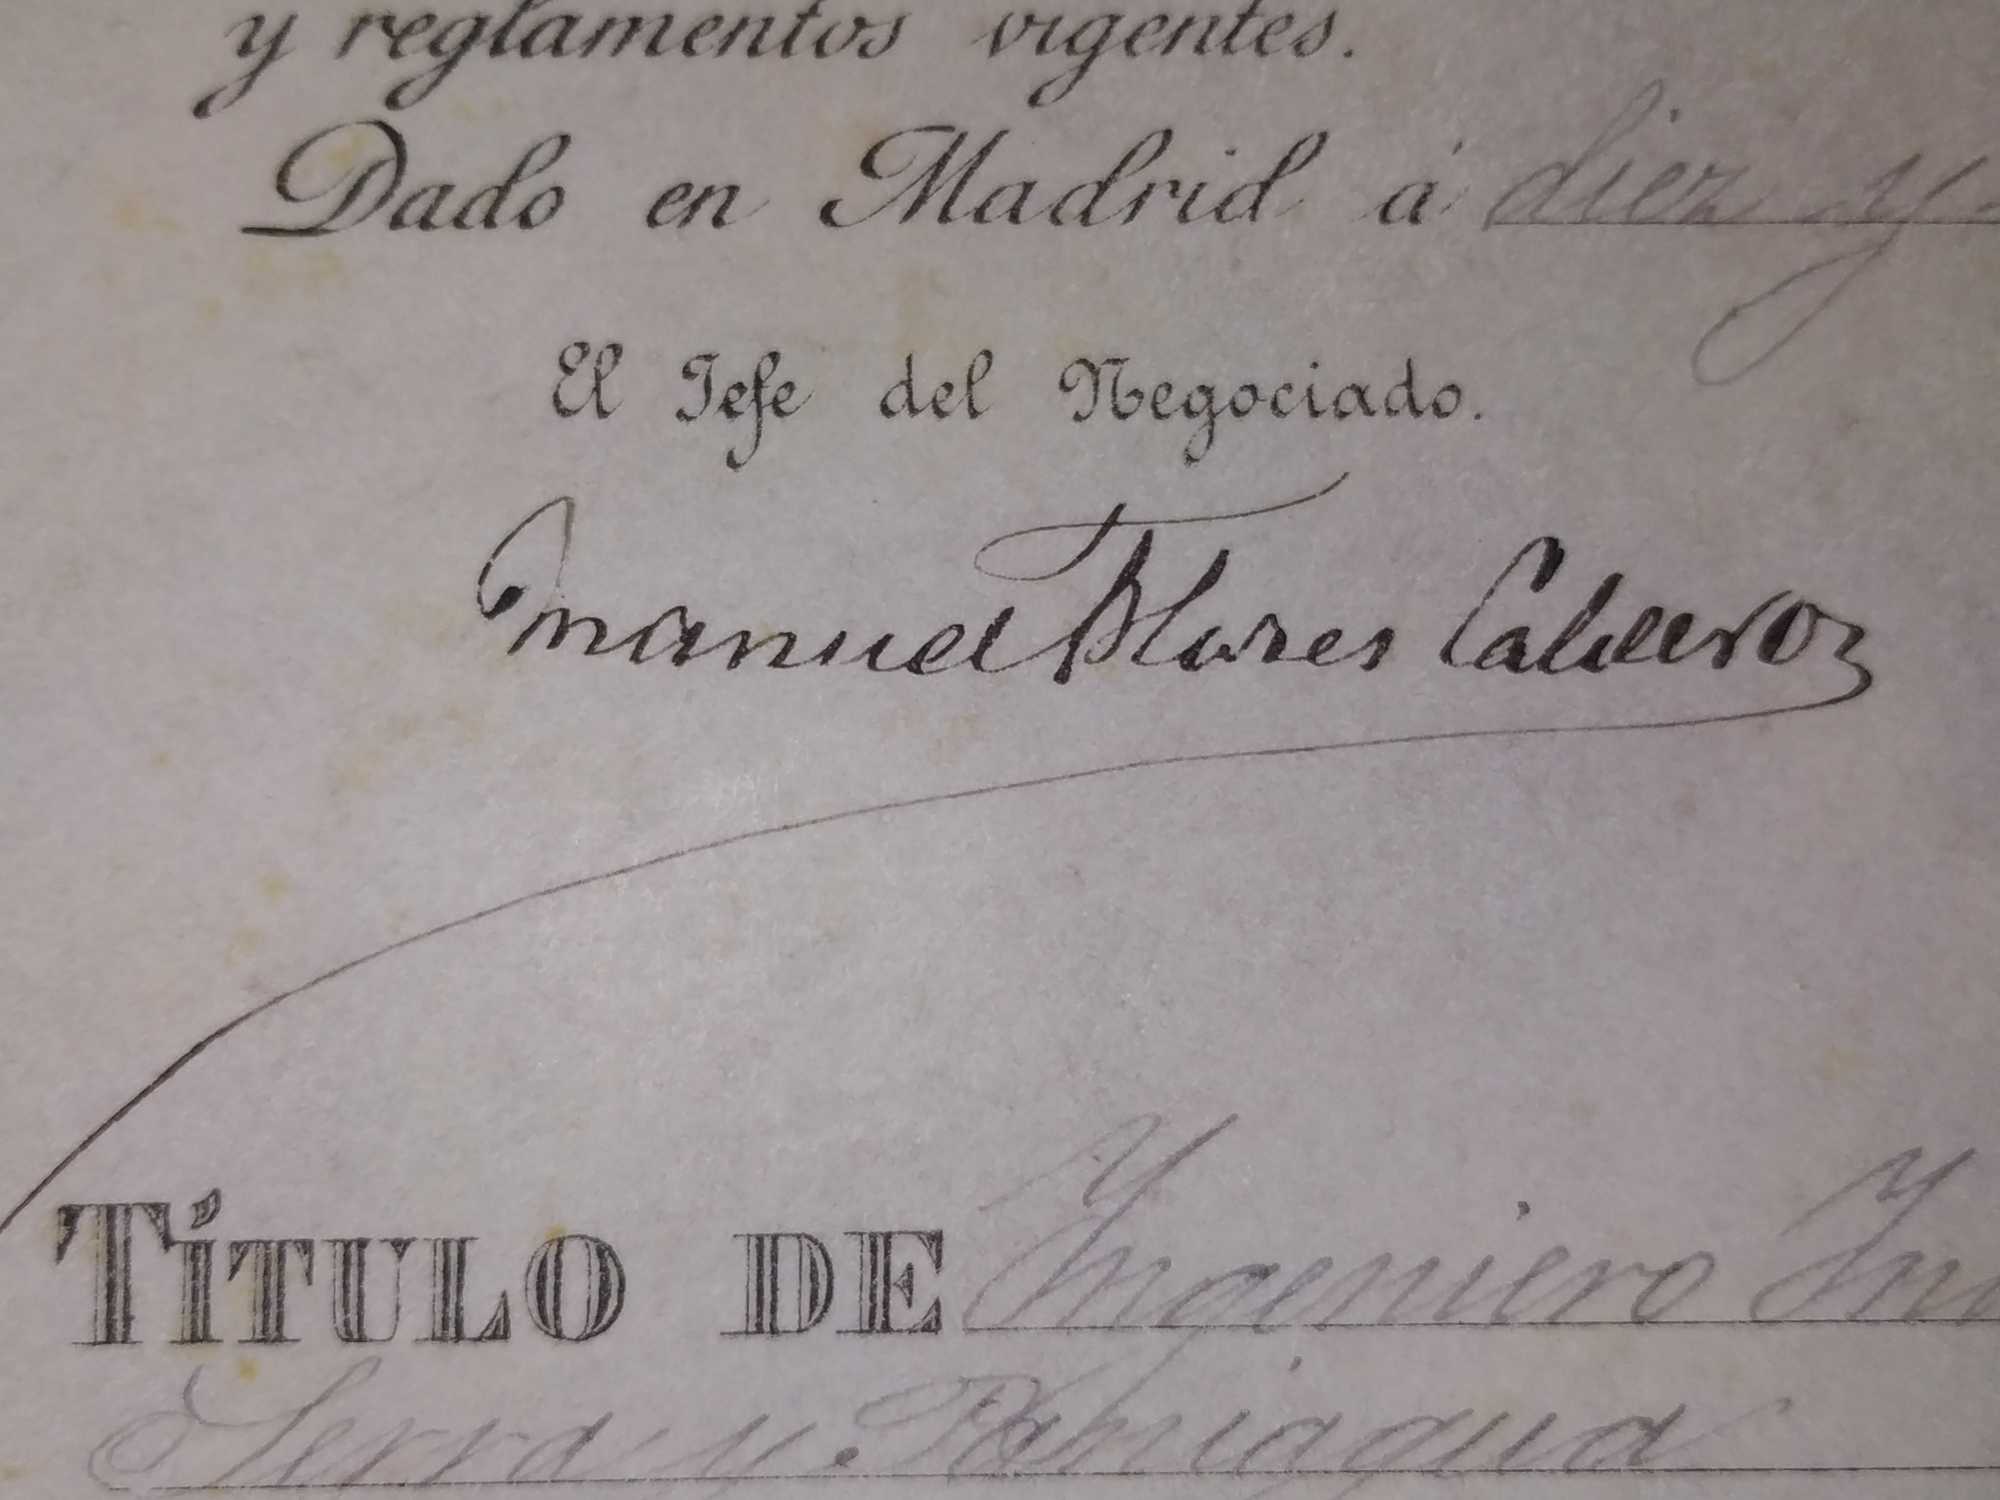 y reglamentos vigentes.
Dado en Madrid á diez y
El Jefe del Negociado.
Manuel Flores Calderon
TÍTULO DE Ingeniero In
Serra y Paniagua